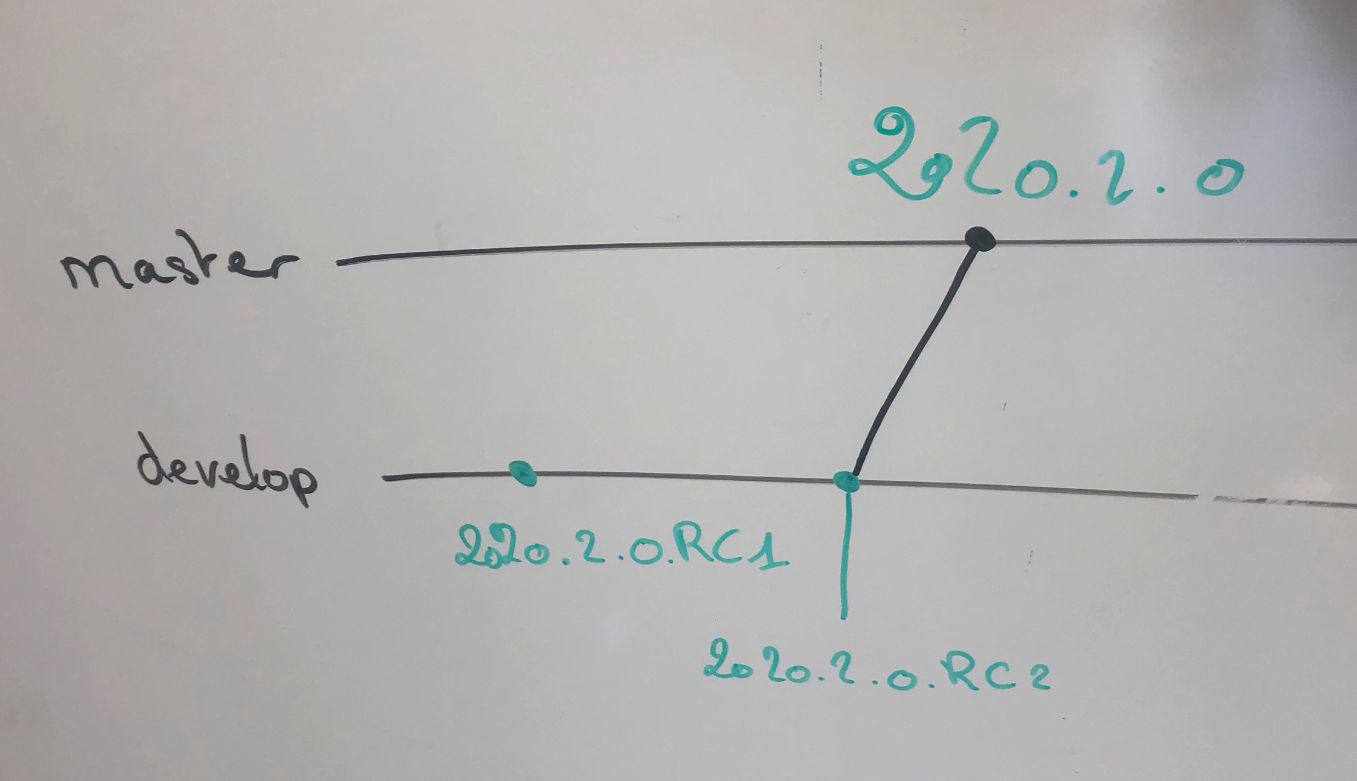 2020.2.0
master
develop
2020.2.0.RC1
2020.2.0.RC2